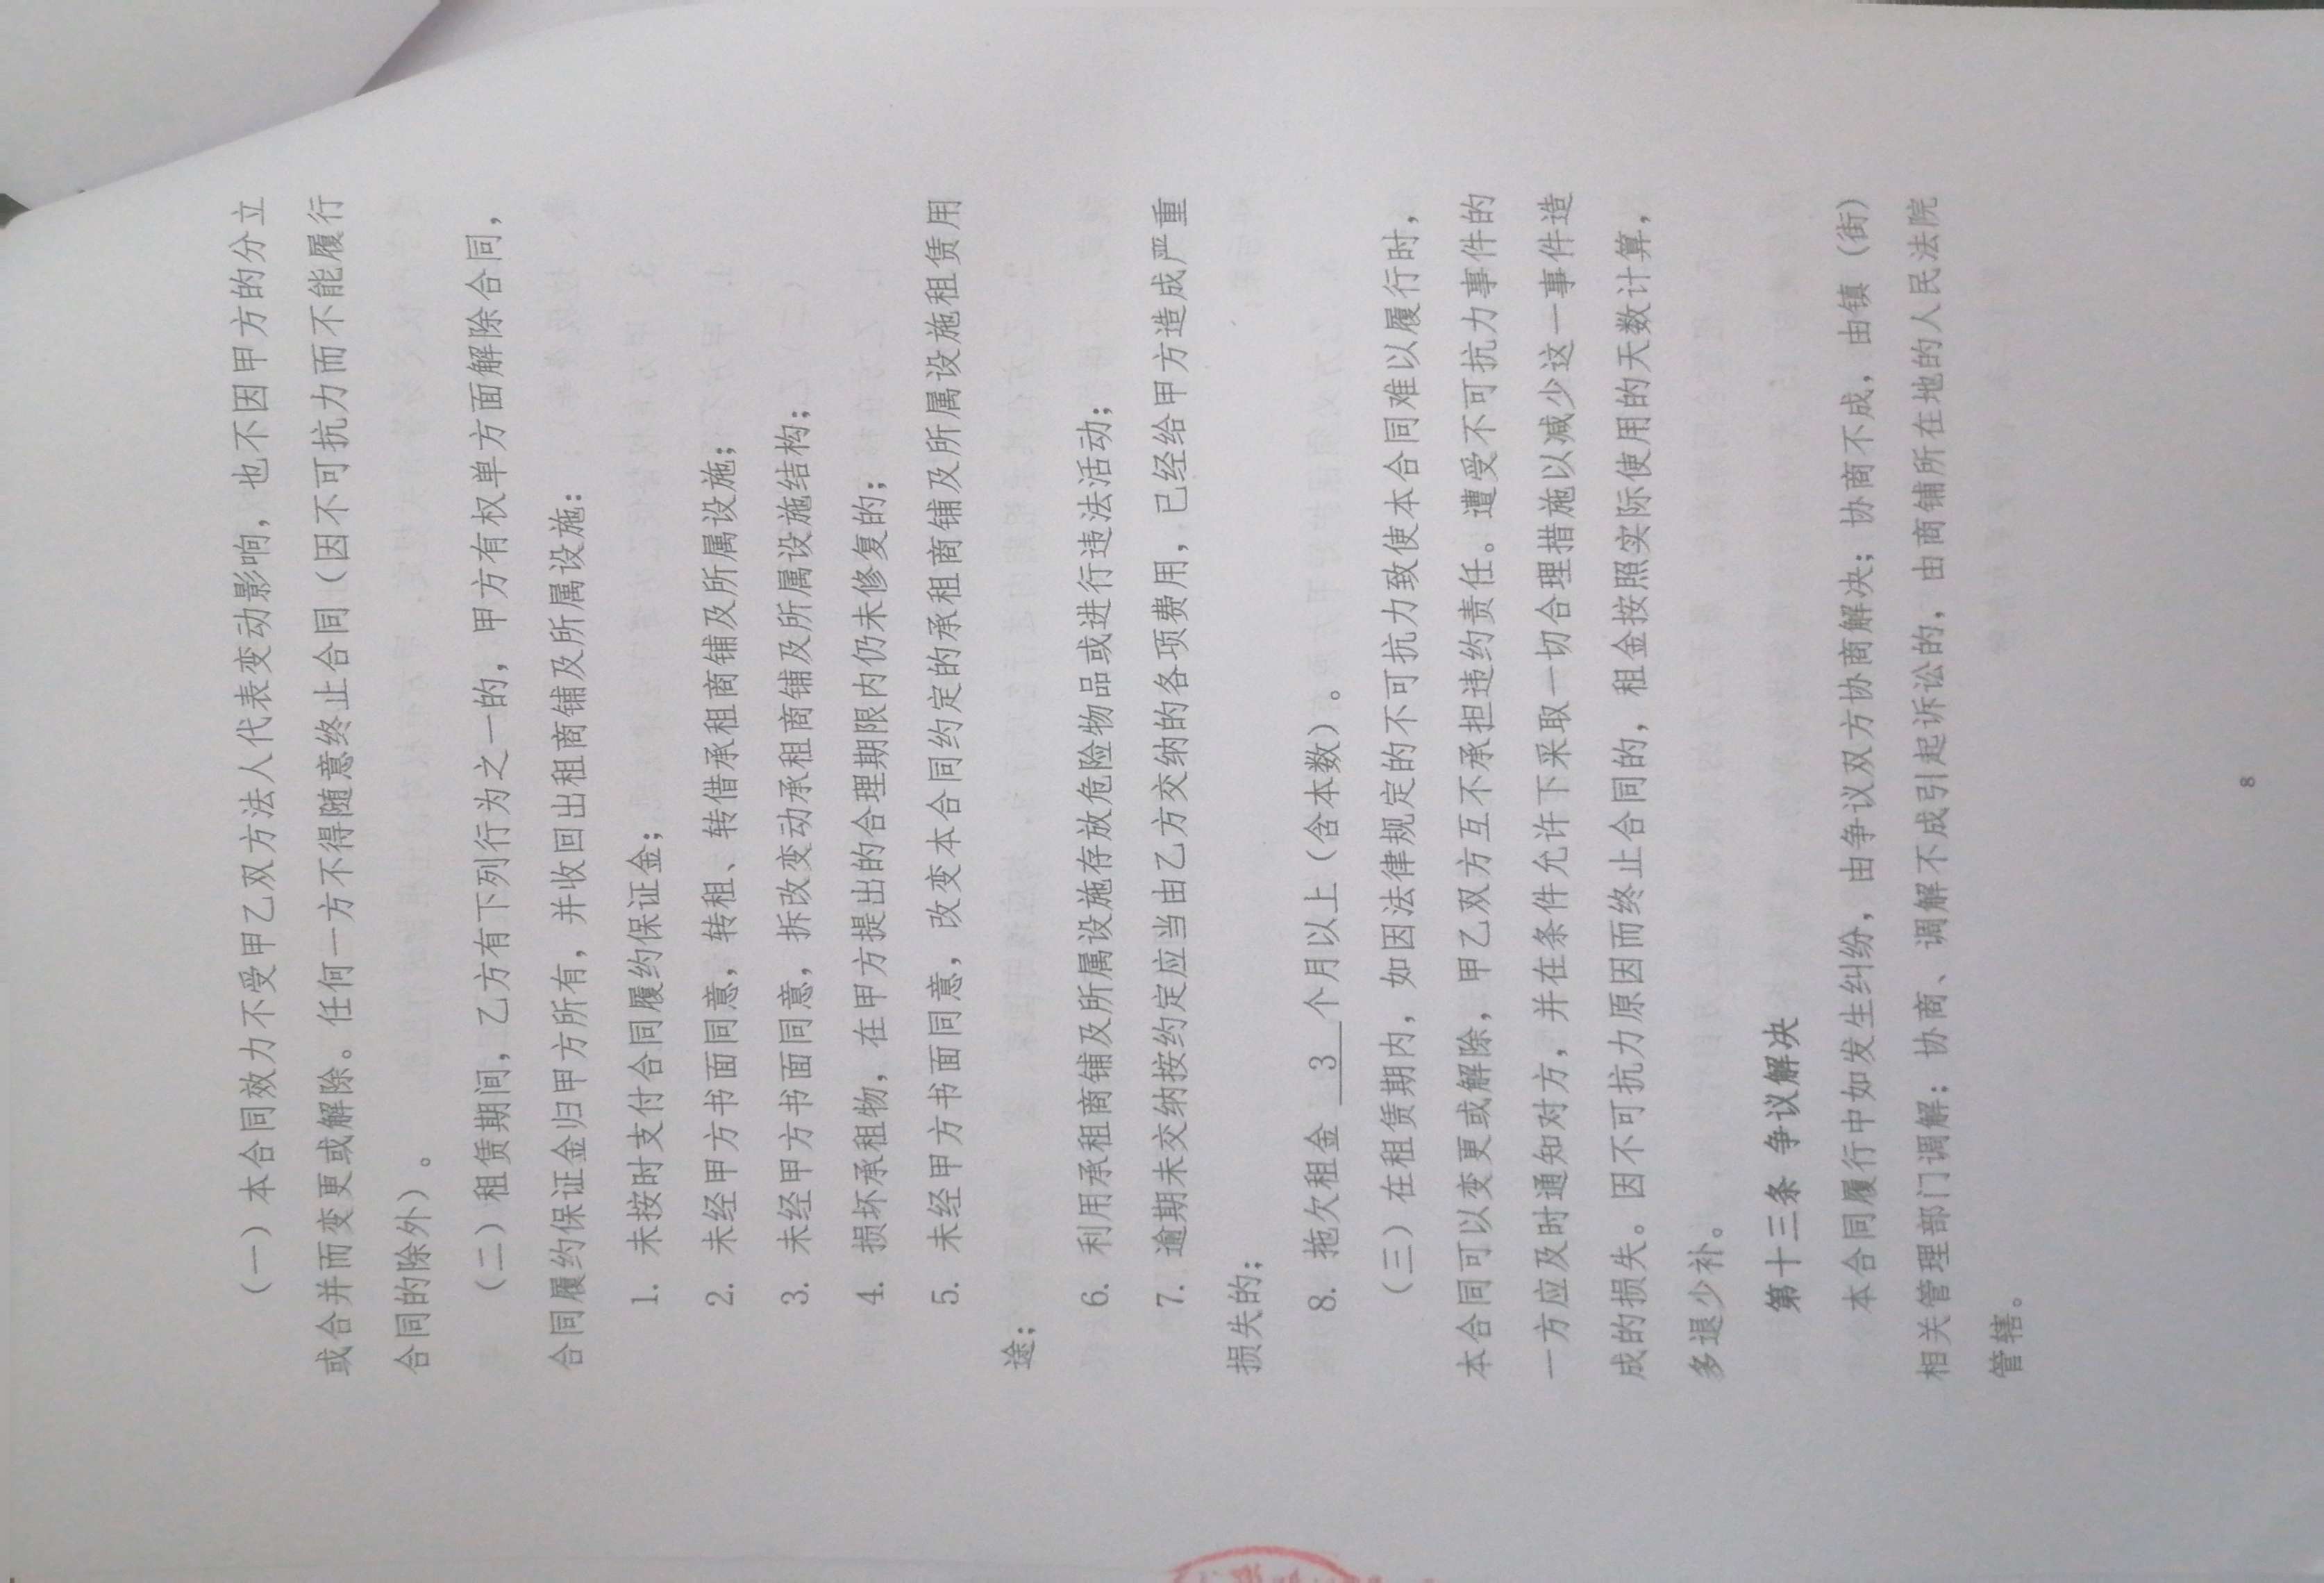 （一）本合同效力不受甲乙双方法人代表变动影响，也不因甲方的分立
或合并而变更或解除。任何一方不得随意终止合同（因不可抗力而不能履行
合同的除外）。
（二）租赁期间，乙方有下列行为之一的，甲方有权单方面解除合同，
合同履约保证金归甲方所有，并收回出租商铺及所属设施：
1. 未按时支付合同履约保证金；
2. 未经甲方书面同意，转租、转借承租商铺及所属设施；
3. 未经甲方书面同意，拆改变动承租商铺及所属设施结构；
4. 损坏承租物，在甲方提出的合理期限内仍未修复的；
5. 未经甲方书面同意，改变本合同约定的承租商铺及所属设施租赁用
途；
6. 利用承租商铺及所属设施存放危险物品或进行违法活动；
7. 逾期未交纳按约定应当由乙方交纳的各项费用，已经给甲方造成严重
损失的；
8. 拖欠租金 3 个月以上（含本数）。
（三）在租赁期内，如因法律规定的不可抗力致使本合同难以履行时，
本合同可以变更或解除，甲乙双方互不承担违约责任。遭受不可抗力事件的
一方应及时通知对方，并在条件允许下采取一切合理措施以减少这一事件造
成的损失。因不可抗力原因而终止合同的，租金按照实际使用的天数计算，
多退少补。
第十三条 争议解决
本合同履行中如发生纠纷，由争议双方协商解决；协商不成，由镇（街）
相关管理部门调解；协商、调解不成引起诉讼的，由商铺所在地的人民法院
管辖。
8